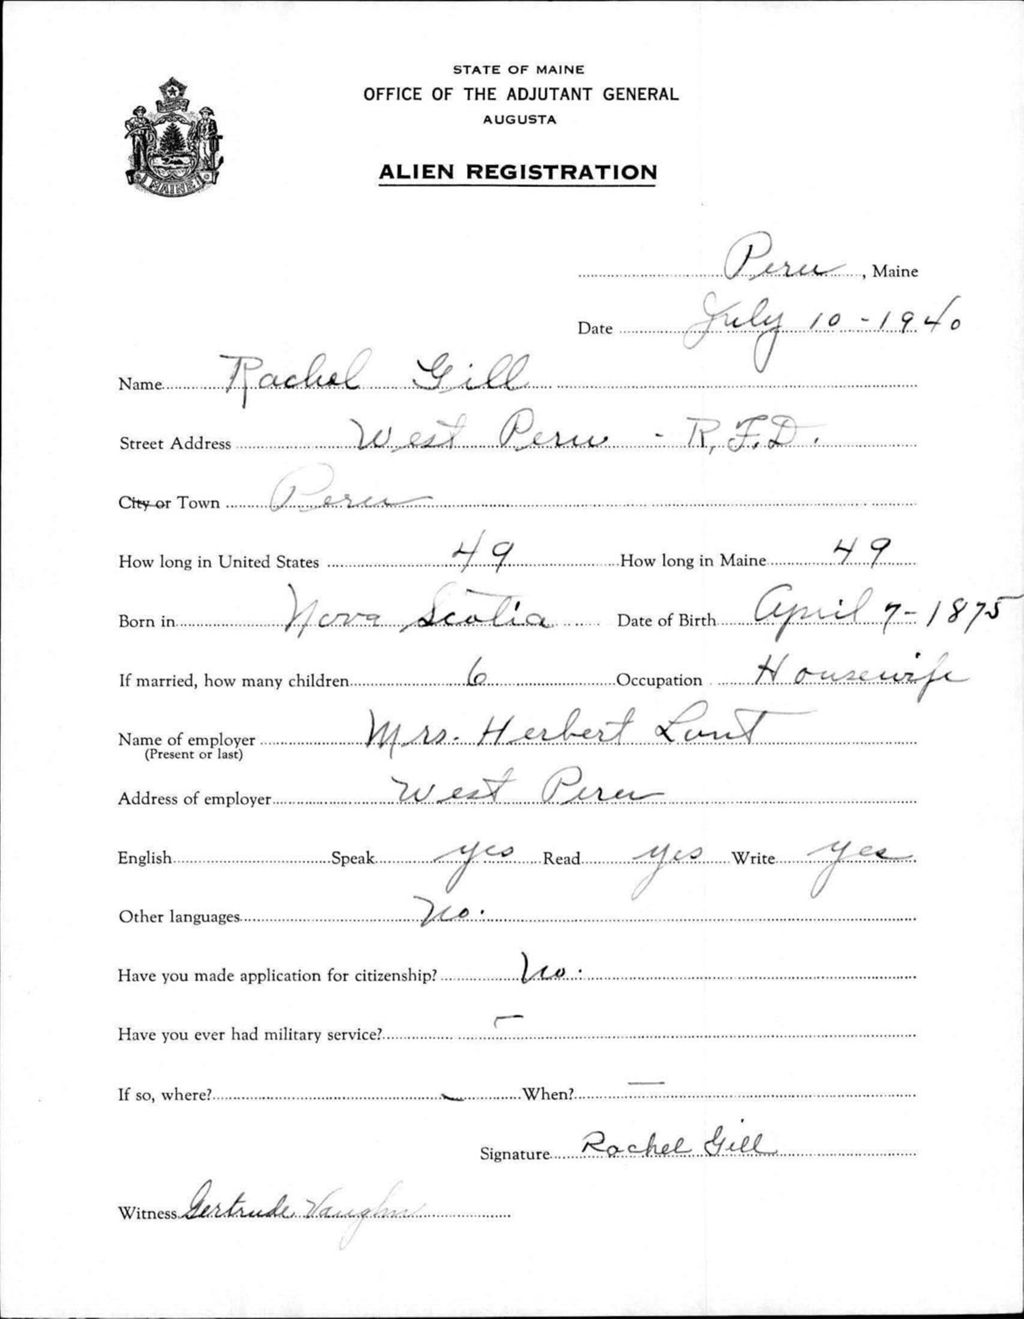 STATE OF MAINE
OFFICE OF THE ADJUTANT GENERAL
AUGUSTA
ALIEN REGISTRATION
MAINE
Peru, Maine
Date July 10 - 1940
Name Rachel Gill
Street Address West Peru - R.F.D.
City or Town Peru
How long in United States 49 How long in Maine 49
Born in Nova Scotia Date of Birth April 7 - 1875
If married, how many children 6 Occupation Housewife
Name of employer Mrs. Herbert Lunt
(Present or last)
Address of employer West Peru
English Speak yes Read yes Write yes
Other languages No.
Have you made application for citizenship? No.
Have you ever had military service? -
If so, where? - When? -
Signature Rachel Gill
Witness Gertrude Vaughn